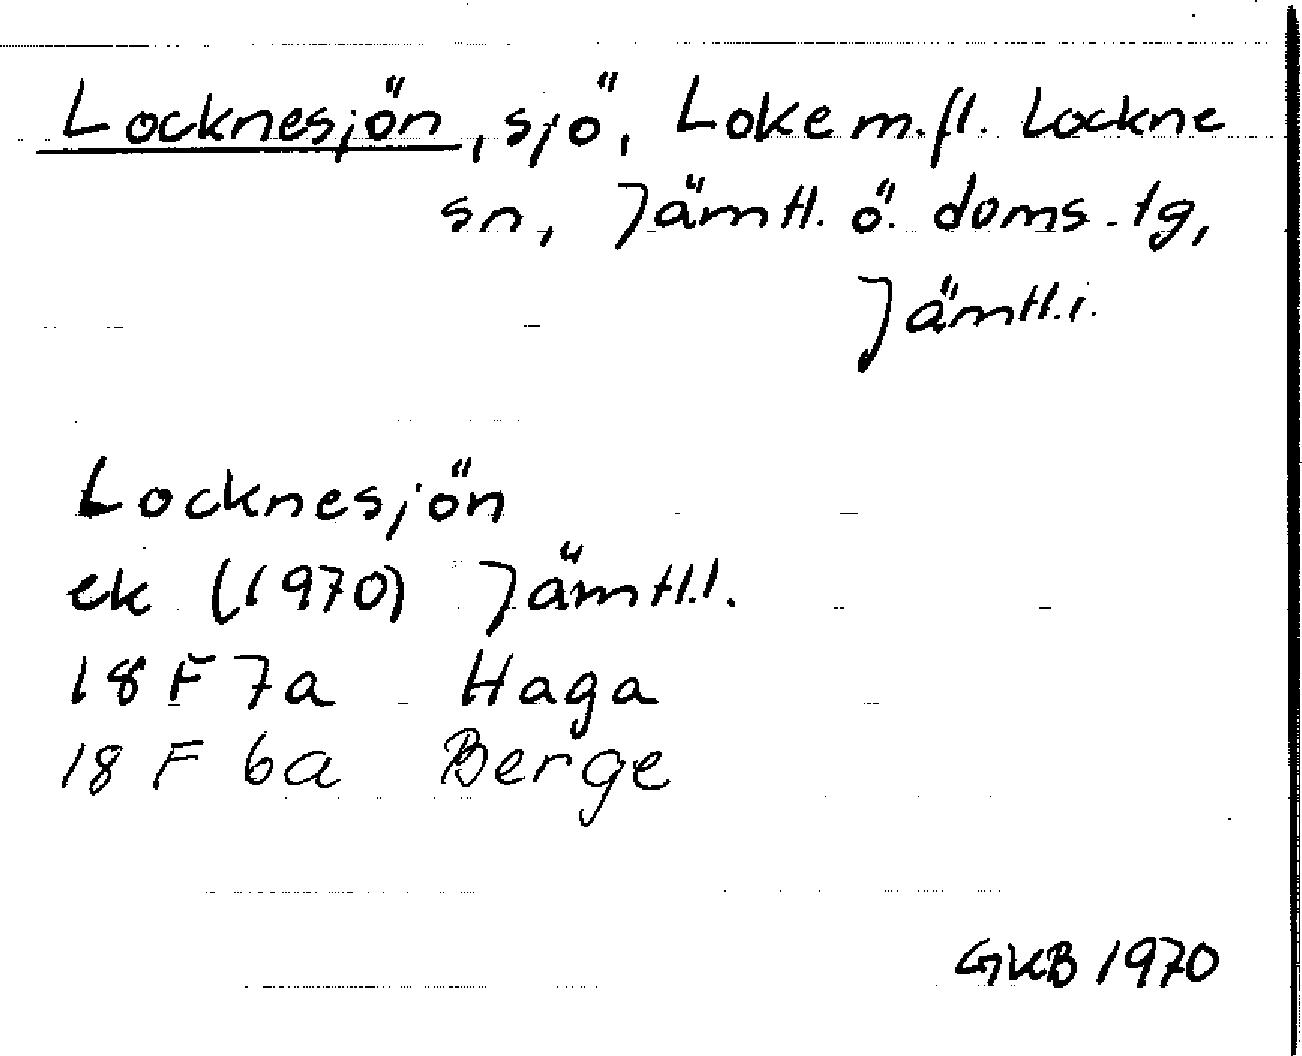 Locknesjön, sjö, Loke m.fl. Lockne
sn, Jämtl. ö. doms.tg,
Jämtl.l.
Locknesjön
ek (1970) Jämtl.l.
18 F 7a Haga
18 F 6a Berge
GKB 1970